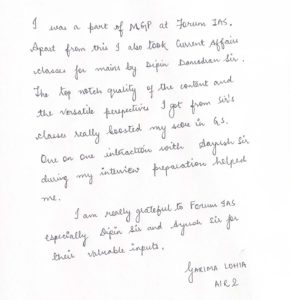 I was a part of MGP at Forum IAS.
Apart from this I also took Current Affair
classes for mains by Dipin Damodran Sir.
The top notch quality of the content and
the versatile perspectives I got from Sir's
classes really boosted my score in G.S.
One on one intraction with Ayush Sir
during my interview preparation helped
me.
I am really grateful to Forum IAS
especially Dipin Sir and Ayush Sir for
their valuable inputs.
GARIMA LOHIA
AIR 2